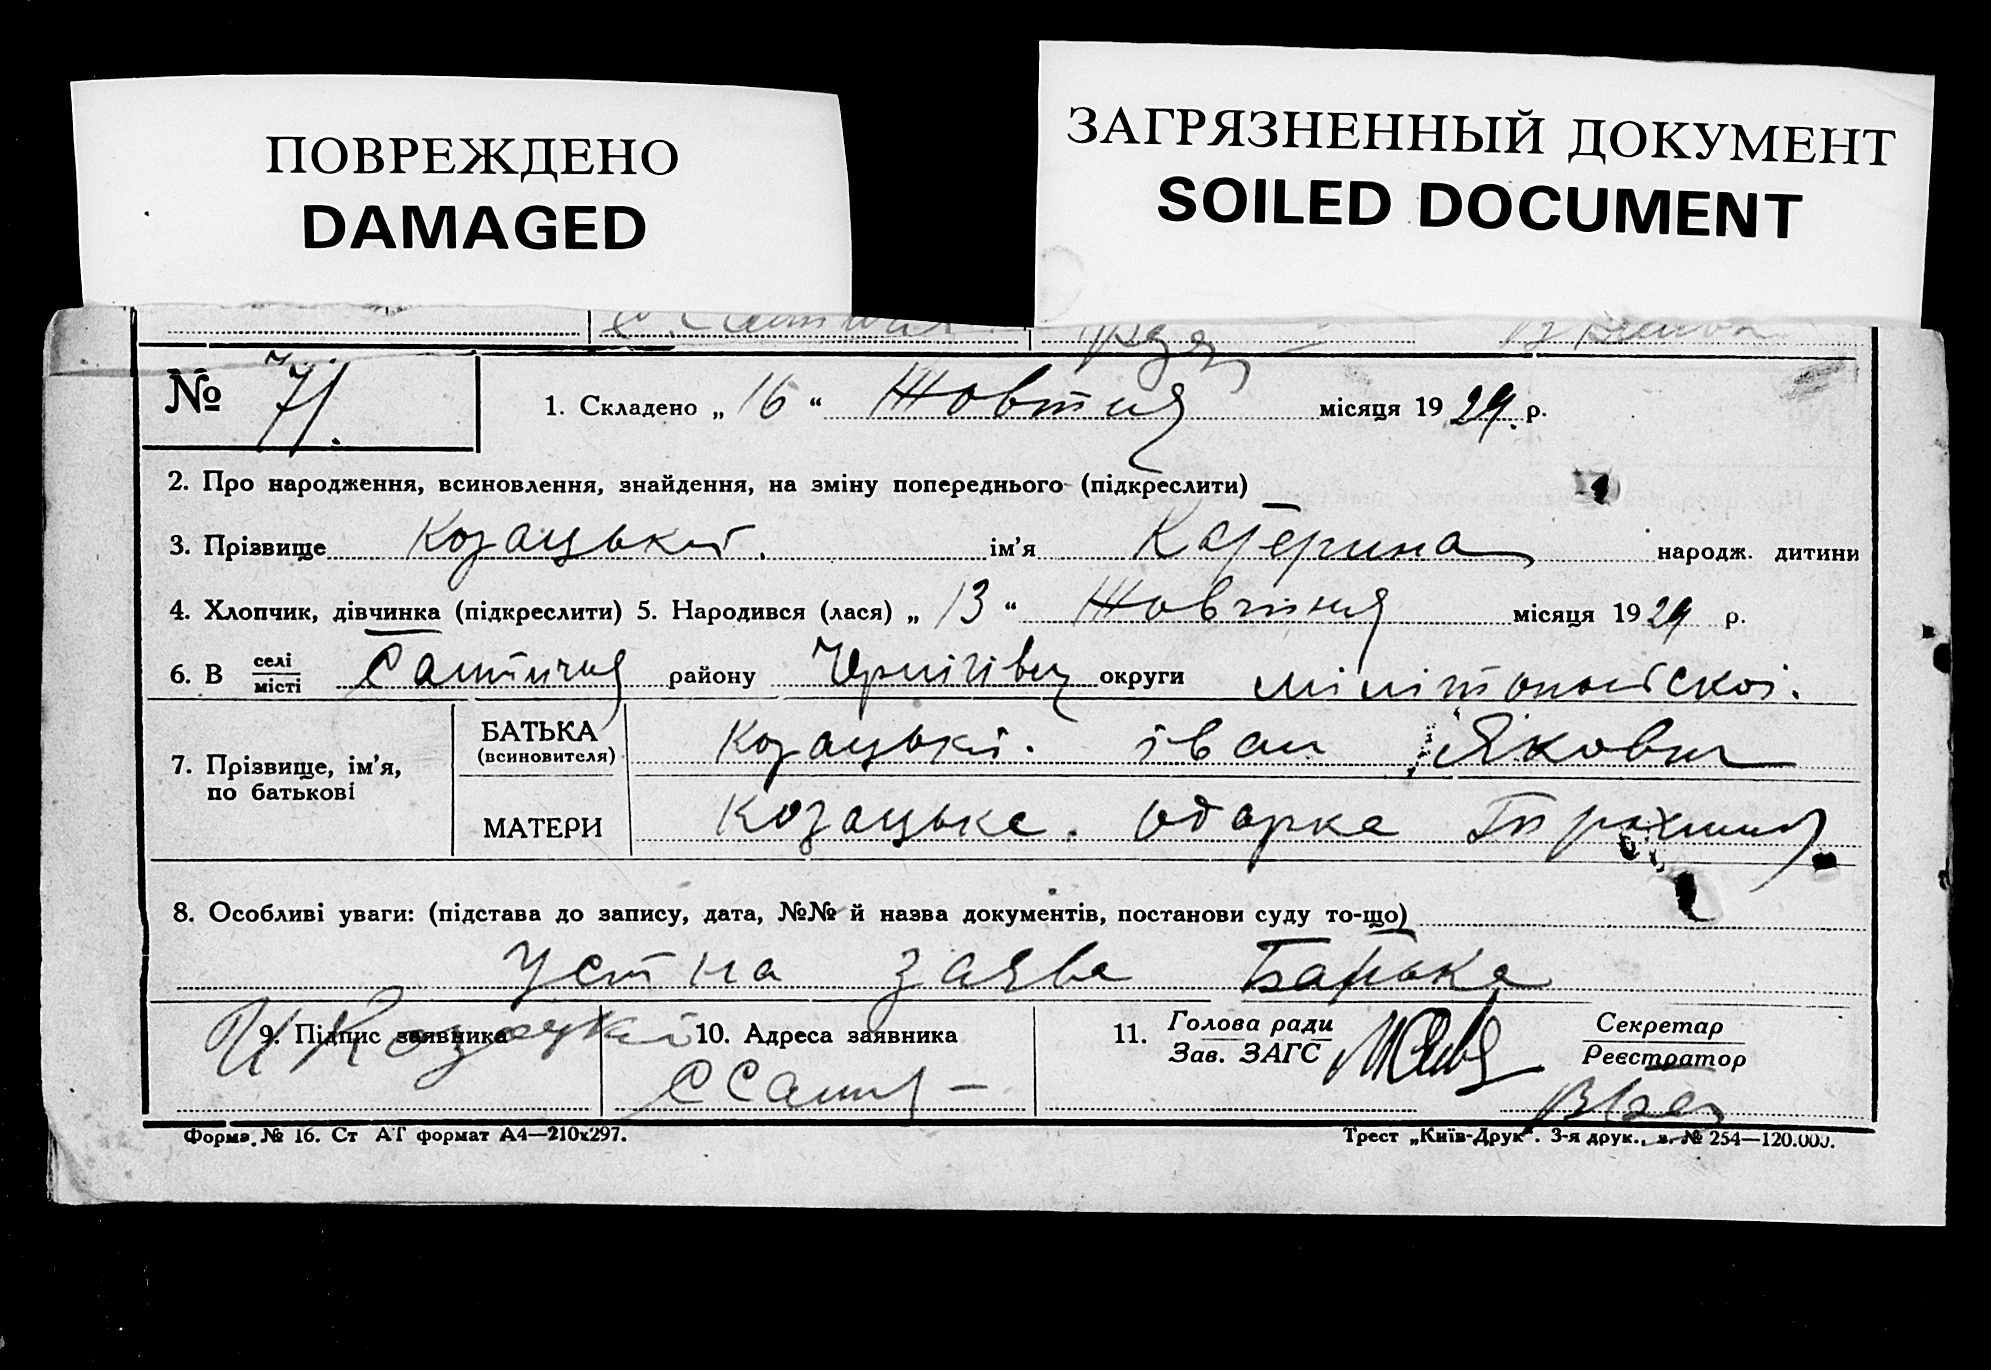 ПОВРЕЖДЕНО
DAMAGED
ЗАГРЯЗНЕННЫЙ ДОКУМЕНТ
SOILED DOCUMENT
№ 71. 1. Складено „ 16 “ Жовтня місяця 1929. р.
2. Про народження, всиновлення, знайдення, на зміну попереднього (підкреслити)
3. Прізвище Козацький. ім’я Катерина народж. дитини
4. Хлопчик, дівчинка (підкреслити) 5. Народився (лася) „ 13 “ Жовтня місяця 1929 р.
6. В селі/місті району округи
7. Прізвище, ім’я, по батькові
БАТЬКА (всиновителя) Козацькі. іван Якович
МАТЕРИ Козацька. одарка
8. Особливі уваги: (підстава до запису, дата, №№ й назва документів, постанови суду то-що)
Устна заява Батька
9. Підпис заявника И Козацкі 10. Адреса заявника 11. Голова ради / Зав. ЗАГС Секретар / Реєстратор
Форма № 16. Ст АТ формат А4—210х297. Трест „Київ-Друк“. 3-я друк., в. № 254—120.000.